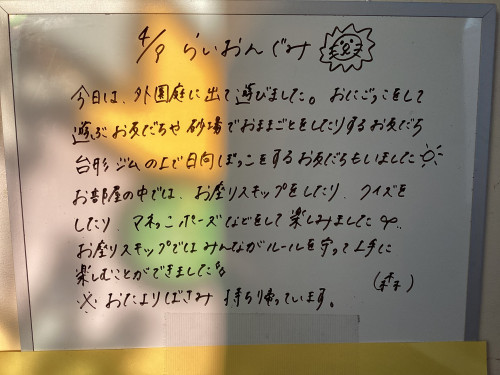 4/9 らいおんぐみ
今日は、外園庭に出て遊びました。おにごっこをして
遊ぶお友だちや砂場でおままごとをしたりするお友だち
台形ジムの上で日向ぼっこをするお友だちもいました
お部屋の中では、お座りスキップをしたり、クイズを
したり、マネっこポーズなどをして楽しみました
お座りスキップではみんながルールを守って上手に
楽しむことができました
※おたよりばさみ持ち帰っています。
(森)